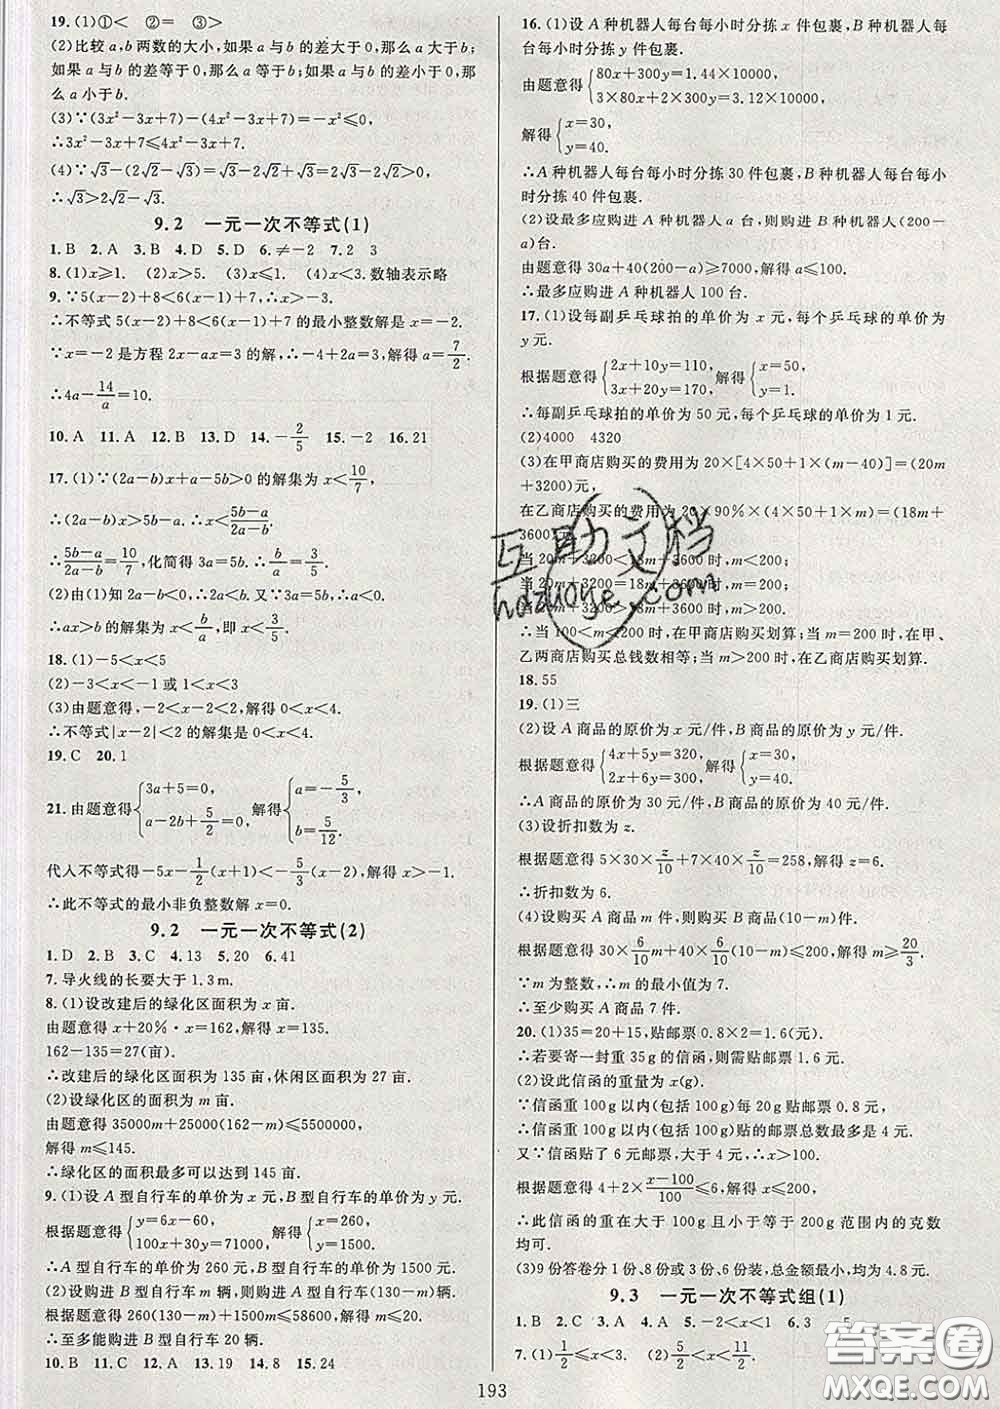 19.(1)①< ②= ③>
(2)比较a,b两数的大小,如果a与b的差大于0,那么a大于b;
如果a与b的差等于0,那么a等于b;如果a与b的差小于0,那
么a小于b.
(3)∵(3x²-3x+7)-(4x²-3x+7)=-x²≤0,
∴3x²-3x+7≤4x²-3x+7.
(4)∵√3-(2√2-√3)=√3-2√2+√3=2√3-2√2>0,
∴√3>2√2-√3.
9.2 一元一次不等式(1)
1.B 2.A 3.B 4.D 5.D 6.≠-2 7.2 3
8.(1)x≥1. (2)x>5. (3)x≤1. (4)x<3.数轴表示略
9.∵5(x-2)+8<6(x-1)+7,∴x>-3.
∴不等式5(x-2)+8<6(x-1)+7的最小整数解是x=-2.
∵x=-2是方程2x-ax=3的解,∴-4+2a=3,解得a=7/2.
∴4a-14/a=10.
10.A 11.A 12.B 13.D 14.-2/5 15.-2 16.21
17.(1)∵(2a-b)x+a-5b>0的解集为x<10/7,
∴(2a-b)x>5b-a,∴x<(5b-a)/(2a-b).
∴(5b-a)/(2a-b)=10/7,化简得3a=5b.∴b/a=3/5.
(2)由(1)知2a-b<0,∴2a<b.又∵3a=5b,∴a<0.
∴ax>b的解集为x<b/a,即x<3/5.
18.(1)-5<x<5
(2)-3<x<-1或1<x<3
(3)由题意得,-2<x-2<2,解得0<x<4.
∴不等式|x-2|<2的解集是0<x<4.
19.C 20.1
21.由题意得{3a+5=0, a-2b+5/2=0. 解得{a=-5/3, b=5/12.
代入不等式得-5x-1/2(x+5/3)<-5/3(x-2),解得x>-1.
∴此不等式的最小非负整数解x=0.
9.2 一元一次不等式(2)
1.D 2.B 3.C 4.13 5.20 6.41
7.导火线的长要大于1.3m.
8.(1)设改建后的绿化区面积为x亩.
由题意得x+20%·x=162,解得x=135.
162-135=27(亩).
∴改建后的绿化区面积为135亩,休闲区面积为27亩.
(2)设绿化区的面积为m亩.
由题意得35000m+25000(162-m)≤5500000,
解得m≤145.
∴绿化区的面积最多可以达到145亩.
9.(1)设A型自行车的单价为x元,B型自行车的单价为y元.
根据题意得{y=6x-60, 100x+30y=71000, 解得{x=260, y=1500.
∴A型自行车的单价为260元,B型自行车的单价为1500元.
(2)设购进B型自行车m辆,则购进A型自行车(130-m)辆.
根据题意得260(130-m)+1500m≤58600,解得m≤20.
∴至多能购进B型自行车20辆.
10.B 11.C 12.D 13.19 14.8 15.24
16.(1)设A种机器人每台每小时分拣x件包裹,B种机器人每
台每小时分拣y件包裹.
由题意得{80x+300y=1.44×10000, 3×80x+2×300y=3.12×10000,
解得{x=30, y=40.
∴A种机器人每台每小时分拣30件包裹,B种机器人每台每小
时分拣40件包裹.
(2)设最多应购进A种机器人a台,则购进B种机器人(200-
a)台.
由题意得30a+40(200-a)≥7000,解得a≤100.
∴最多应购进A种机器人100台.
17.(1)设每副乒乓球拍的单价为x元,每个乒乓球的单价为
y元.
根据题意得{2x+10y=110, 3x+20y=170, 解得{x=50, y=1.
∴每副乒乓球拍的单价为50元,每个乒乓球的单价为1元.
(2)4000 4320
(3)在甲商店购买的费用为20×[4×50+1×(m-40)]=(20m
+3200)元,
在乙商店购买的费用为20×90%×(4×50+1×m)=(18m+
3600)元.
当20m+3200<18m+3600时,m<200;
当20m+3200=18m+3600时,m=200;
当20m+3200>18m+3600时,m>200.
∴当100<m<200时,在甲商店购买划算;当m=200时,在甲、
乙两商店购买总钱数相等;当m>200时,在乙商店购买划算.
18.55
19.(1)三
(2)设A商品的原价为x元/件,B商品的原价为y元/件.
根据题意得{4x+5y=320, 2x+6y=300, 解得{x=30, y=40.
∴A商品的原价为30元/件,B商品的原价为40元/件.
(3)设折扣数为z.
根据题意得5×30×z/10+7×40×z/10=258,解得z=6.
∴折扣数为6.
(4)设购买A商品m件,则购买B商品(10-m)件.
根据题意得30×6/10m+40×6/10(10-m)≤200,解得m≥20/3.
∵m为整数,∴m的最小值为7.
∴至少购买A商品7件.
20.(1)35=20+15,贴邮票0.8×2=1.6(元).
∴若要寄一封重35g的信函,则需贴邮票1.6元.
(2)设此信函的重量为x(g).
∵信函重100g以内(包括100g)每20g贴邮票0.8元,
∴信函重100g以内(包括100g)的邮票总数最多是4元.
又∵信函贴了6元邮票,大于4元,∴x>100.
根据题意得4+2×(x-100)/100≤6,解得x≤200.
∴此信函的重在大于100g且小于等于200g范围内的克数
均可.
(3)9份答卷分1份、8份或3份、6份装,总金额最小,均为4.8元.
9.3 一元一次不等式组(1)
1.B 2.C 3.A 4.A 5.-2<x<1 6.3
7.(1)1/2≤x<3. (2)
193
互助文档
hdzuoye.com
答案圈
MXQE.COM